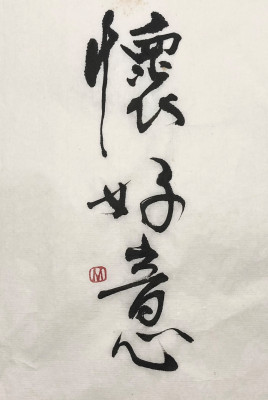 懷好意
M